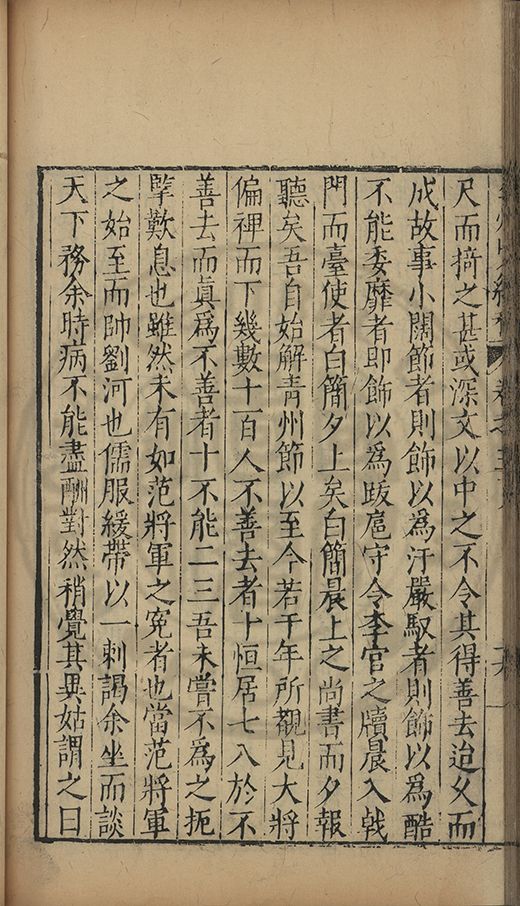 尺而掎之甚或深文以中之不令其得善去迨久而
成故事小闊節者則飾以為汙嚴馭者則飾以為酷
不能委靡者即飾以為跋扈守令李官之牘晨入戟
門而臺使者白簡夕上矣白簡晨上之尚書而夕報
聽矣吾自始解青州節以至今若干年所覩見大將
偏裨而下幾數十百人不善去者十恒居七八於不
善去而真為不善者十不能二三吾未嘗不為之扼
掔歎息也雖然未有如范將軍之寃者也當范將軍
之始至而帥劉河也儒服緩帶以一刺謁余坐而談
天下務余時病不能盡酬對然稍覺其異姑謂之曰